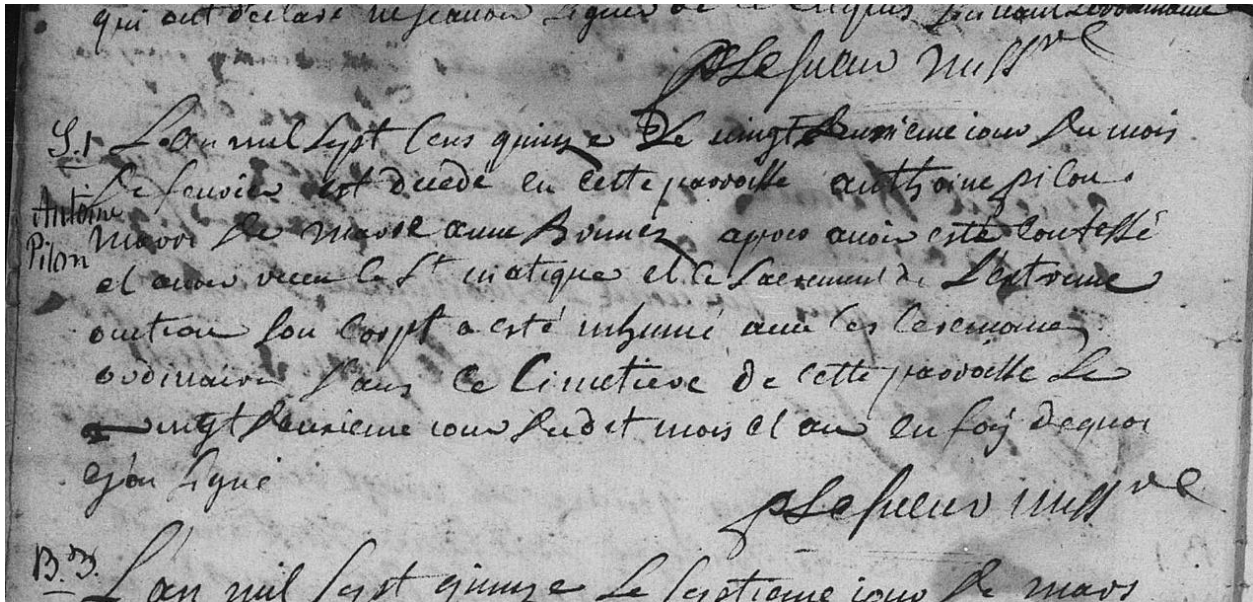 qui ont declare ne scavoir signer de ce enquis
P Lesueur miss.re
S.1 L'an mil sept cens quinze le vingt deuxieme iour du mois
Antoine Pilon
de fevrier est decede en cette parroisse anthoine pilon
mary de marie anne Brunet apres avoir esté confessé
et avoir receu le St viatique et le sacrement de l'extreme
onction son corps a esté inhumé avec les ceremonies
ordinaires dans le Cimetiere de cette parroisse le
vingt deuxieme iour dudit mois et an en foy de quoi
j'ai signé
P Lesueur miss.re
B.3.
L'an mil sept quinze le septieme iour de mars